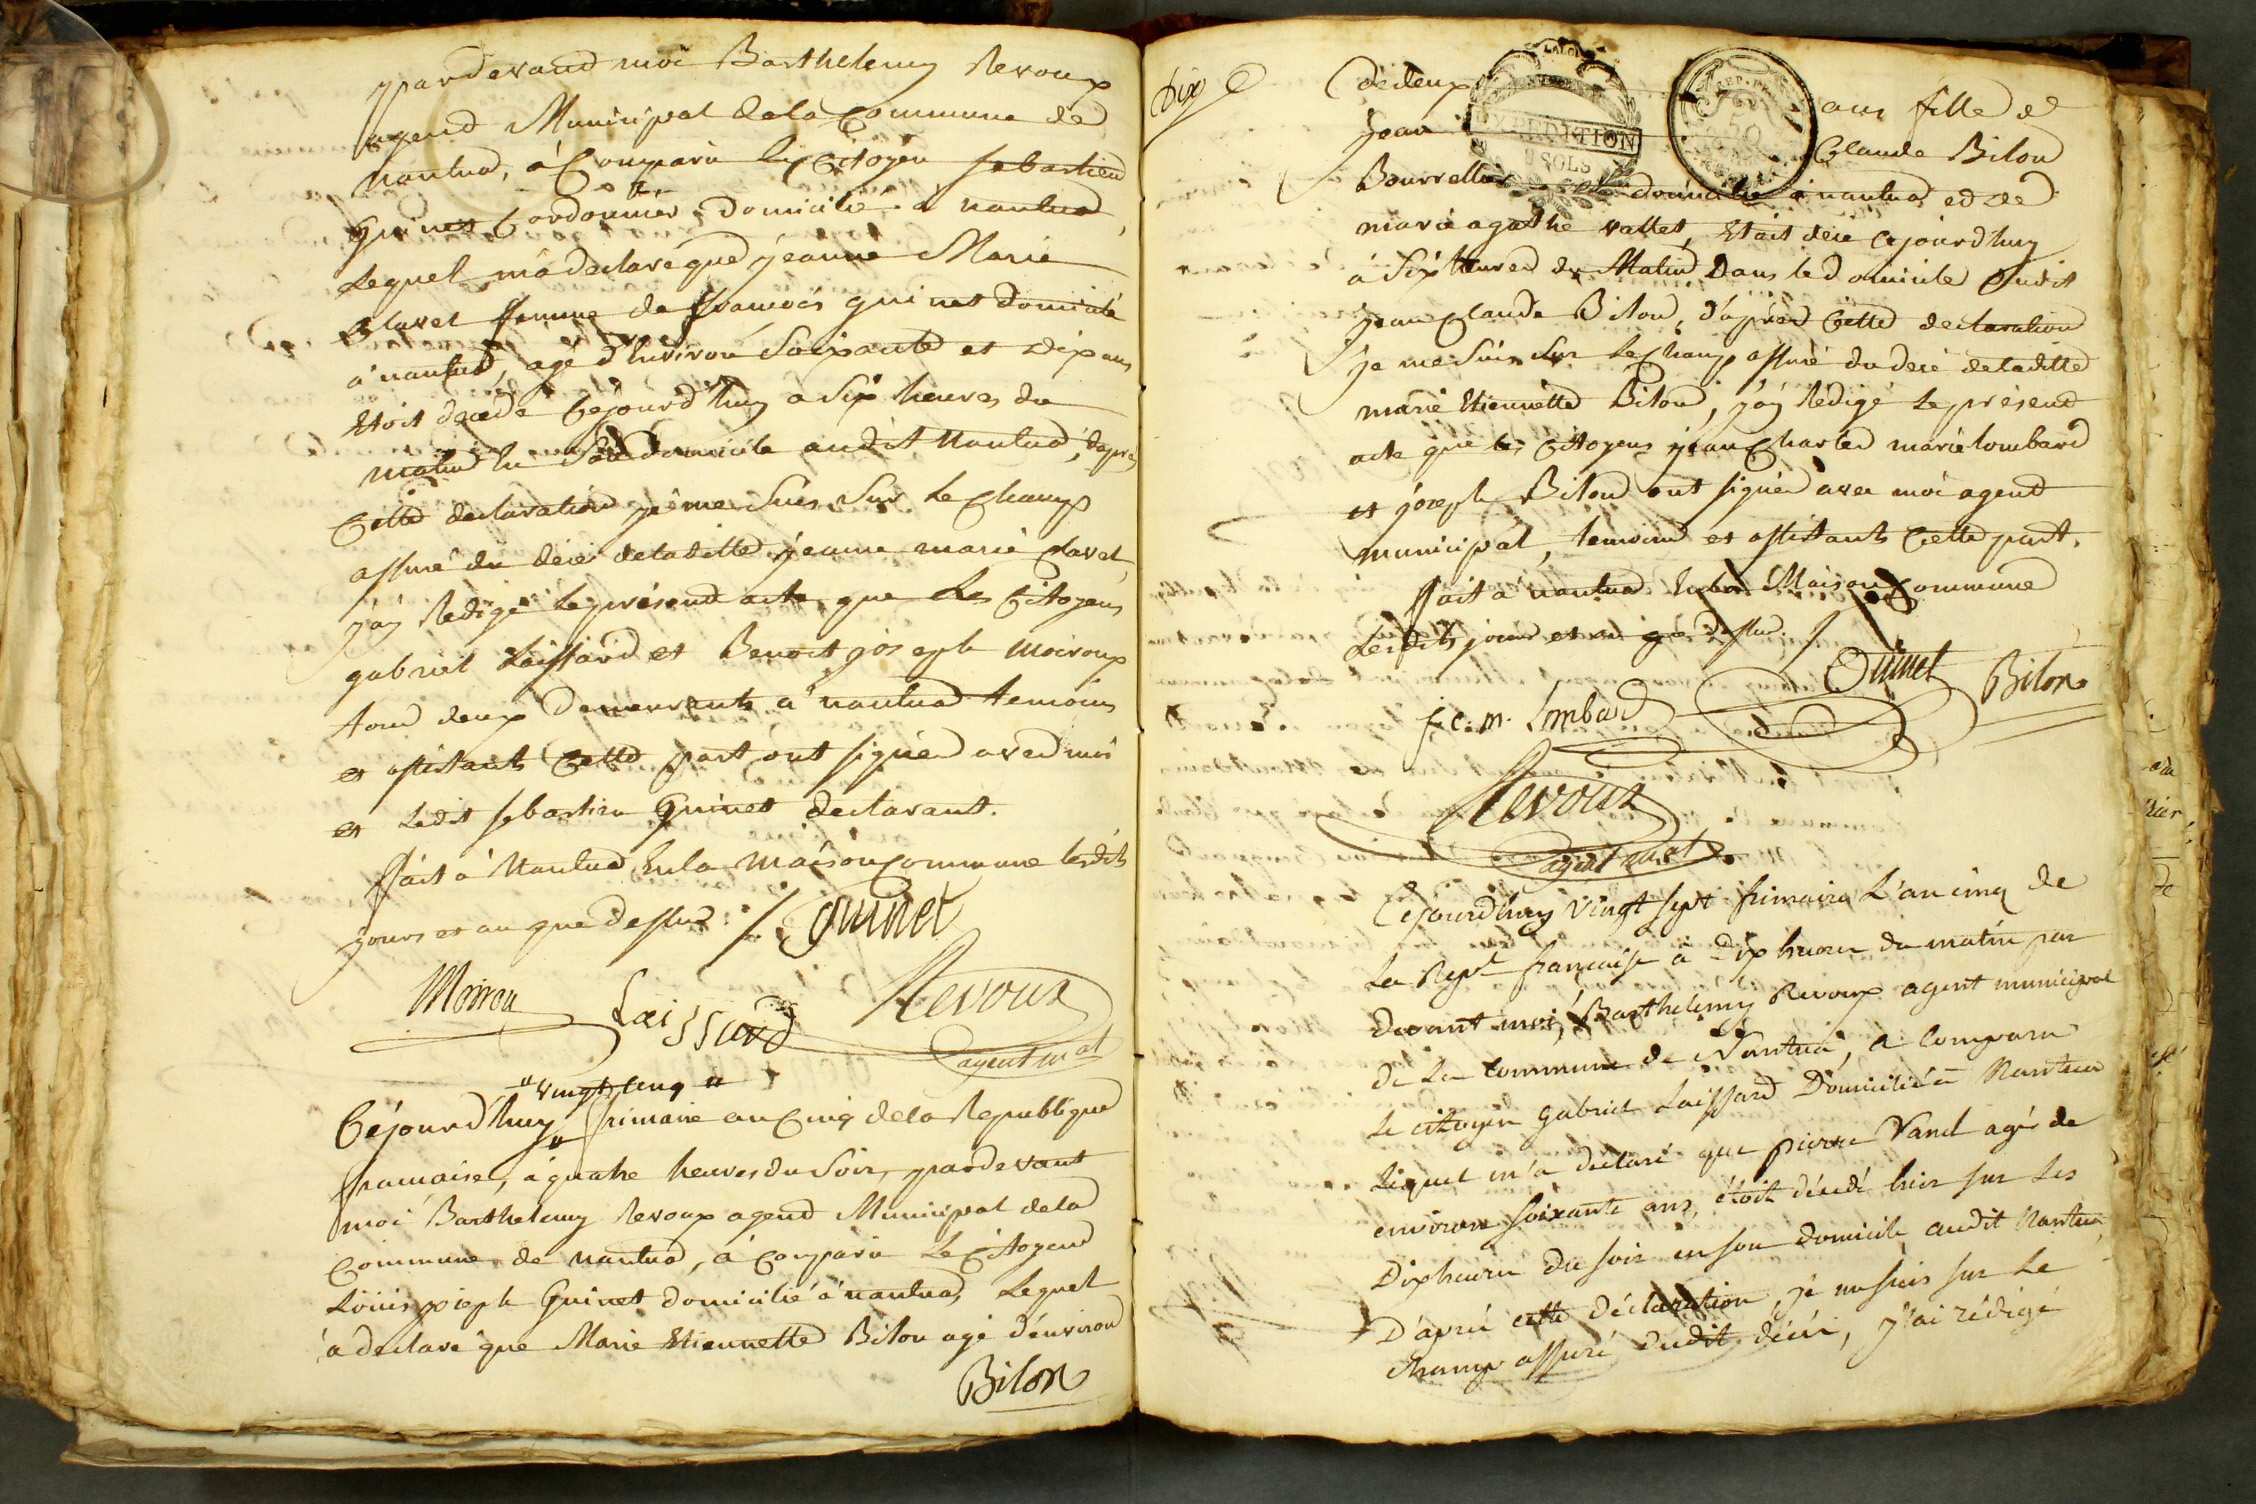 pardevand moi Barthelemy Revoux
agend Municipal dela Commune de
nantua, à Comparu le Citoyen sebastien
Guinet Cordonnier domicilié à nantua,
Lequel m'a declaré que jeanne Marie
Clavel femme de francois guinet domicilié
à nantua, agé d'environ Soixante et dix ans
Etoit decedé Cejourd'huy a Six heures du
matin en Son domicile audit Nantua, d'apres
Cette declaration je me Suis Sur le Champ
assuré du décè deladitte jeanne marie Clavel,
j'ay Redigé le présend acte que Les Citoyens
gabriel Laissard et Benoit joseph Moiroux
tous deux demeurants à nantua temoins
et assistants Cette part ont signéd aved moi
et Ledit sebastien Guinet declarant.
fait à Nantua, En la Maison Commune lesdits
jours et an que dessus. / Guinet
Moirou Laissard Revoux
agent m.al
"vingt cinq"
Céjourd'huy frimaire an Cinq dela Republique
francaise, à quatre heures du Soir, pardevant
moi Barthelemy Revoux agend Municipal dela
Commune de nantua, à Comparu Le Citoyend
Loüis joseph Guinet domicilié à nantua, Lequel
à declaré que Marie Etiennette Bilon agé d'environ
Bilon
Dix
dedeux ans fille de
jean Claude Bilon
Bourrellier domicilié à nantua et de
marie agathe vallet, Etait décé Cejourdhuy
à Six heures du Matin Dans le domicile dudit
jean Claude Bilon, d'après Cette declaration
je me Suis Sur le Champ assuré du decé deladitte
marie Etiennette Bilon, j'ay Rédigé le présend
acte que les Citoyens jean Charles marie lombard
et joseph Bilon ont signéd avec moi agend
municipal, temoins et assistants Cette part.
fait à nantua En la Maison Commune
Lesdits jours et an que dessus. /
EXPEDITION
SOLS
REP. FRA
50
j. c. m. Lombard Guinet Bilon
Revoux
agent m.al
Cejourd'huy vingt sept frimaire L'an cinq de
La Repe francaise à Dix heures du matin par
devant moi, Barthelemy Revoux agent municipal
de La commune de Nantua, a Comparu
Le citoyen Gabriel Laissard Domicilié à Nantua
Lequel m'a declaré que pierre Vanel agé de
environ soixante ans, étoit décedé hier sur Les
Dix heures du soir en son domicile audit Nantua
D'après cette Déclaration je me suis sur Le
champ assuré dudit décés, j'ai rédigé